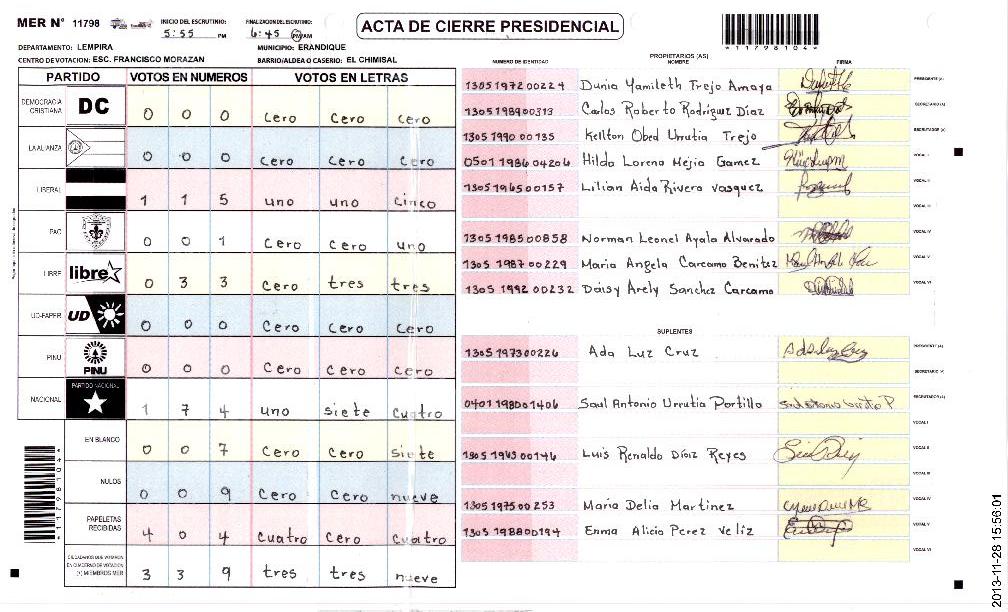 MER N° 11798
INICIO DEL ESCRUTINIO: 5:55 PM
FINALIZACION DEL ESCRUTINIO: 6:45 PM AM
ACTA DE CIERRE PRESIDENCIAL
*11798104*
DEPARTAMENTO: LEMPIRA MUNICIPIO: ERANDIQUE
CENTRO DE VOTACION: ESC. FRANCISCO MORAZAN BARRIO/ALDEA O CASERIO: EL CHIMISAL
PARTIDO VOTOS EN NUMEROS VOTOS EN LETRAS
DEMOCRACIA CRISTIANA DC 0 0 0 Cero Cero Cero
LA ALIANZA 0 0 0 Cero Cero Cero
LIBERAL 1 1 5 uno uno cinco
PAC 0 0 1 Cero Cero uno
LIBRE libre 0 3 3 Cero tres tres
UD-FAPER UD 0 0 0 Cero Cero Cero
PINU PINU 0 0 0 Cero Cero Cero
NACIONAL PARTIDO NACIONAL 1 7 4 uno siete cuatro
EN BLANCO 0 0 7 Cero Cero siete
NULOS 0 0 9 Cero Cero nueve
PAPELETAS RECIBIDAS 4 0 4 cuatro Cero cuatro
CIUDADANOS QUE VOTARON EN CUADERNO DE VOTACION (+) MIEMBROS MER 3 3 9 tres tres nueve
*11798104*
PROPIETARIOS (AS)
NUMERO DE IDENTIDAD NOMBRE FIRMA
1305 1972 00224 Dunia Yamileth Trejo Amaya PRESIDENTE (A)
1305 1989 00313 Carlos Roberto Rodriguez Díaz SECRETARIO (A)
1305 1990 00135 Kellton Obed Urrutia Trejo ESCRUTADOR (A)
0501 1986 04206 Hilda Lorena Mejia Gamez VOCAL I
1305 1965 00157 Lilian Aida Rivera Vasquez VOCAL II
VOCAL III
1305 1985 00858 Norman Leonel Ayala Alvarado VOCAL IV
1305 1987 00229 Maria Angela Carcamo Benitez VOCAL V
1305 1992 00232 Daisy Arely Sanchez Carcamo VOCAL VI
SUPLENTES
1305 1973 00226 Ada Luz Cruz PRESIDENTE (A)
SECRETARIO (A)
0401 1980 01406 Saul Antonio Urrutia Portillo ESCRUTADOR (A)
VOCAL I
1305 1963 00146 Luis Renaldo Díaz Reyes VOCAL II
VOCAL III
1305 1975 00253 Maria Delia Martinez VOCAL IV
1305 1988 00194 Enma Alicia Perez Veliz VOCAL V
VOCAL VI
2013-11-28 15:56:01